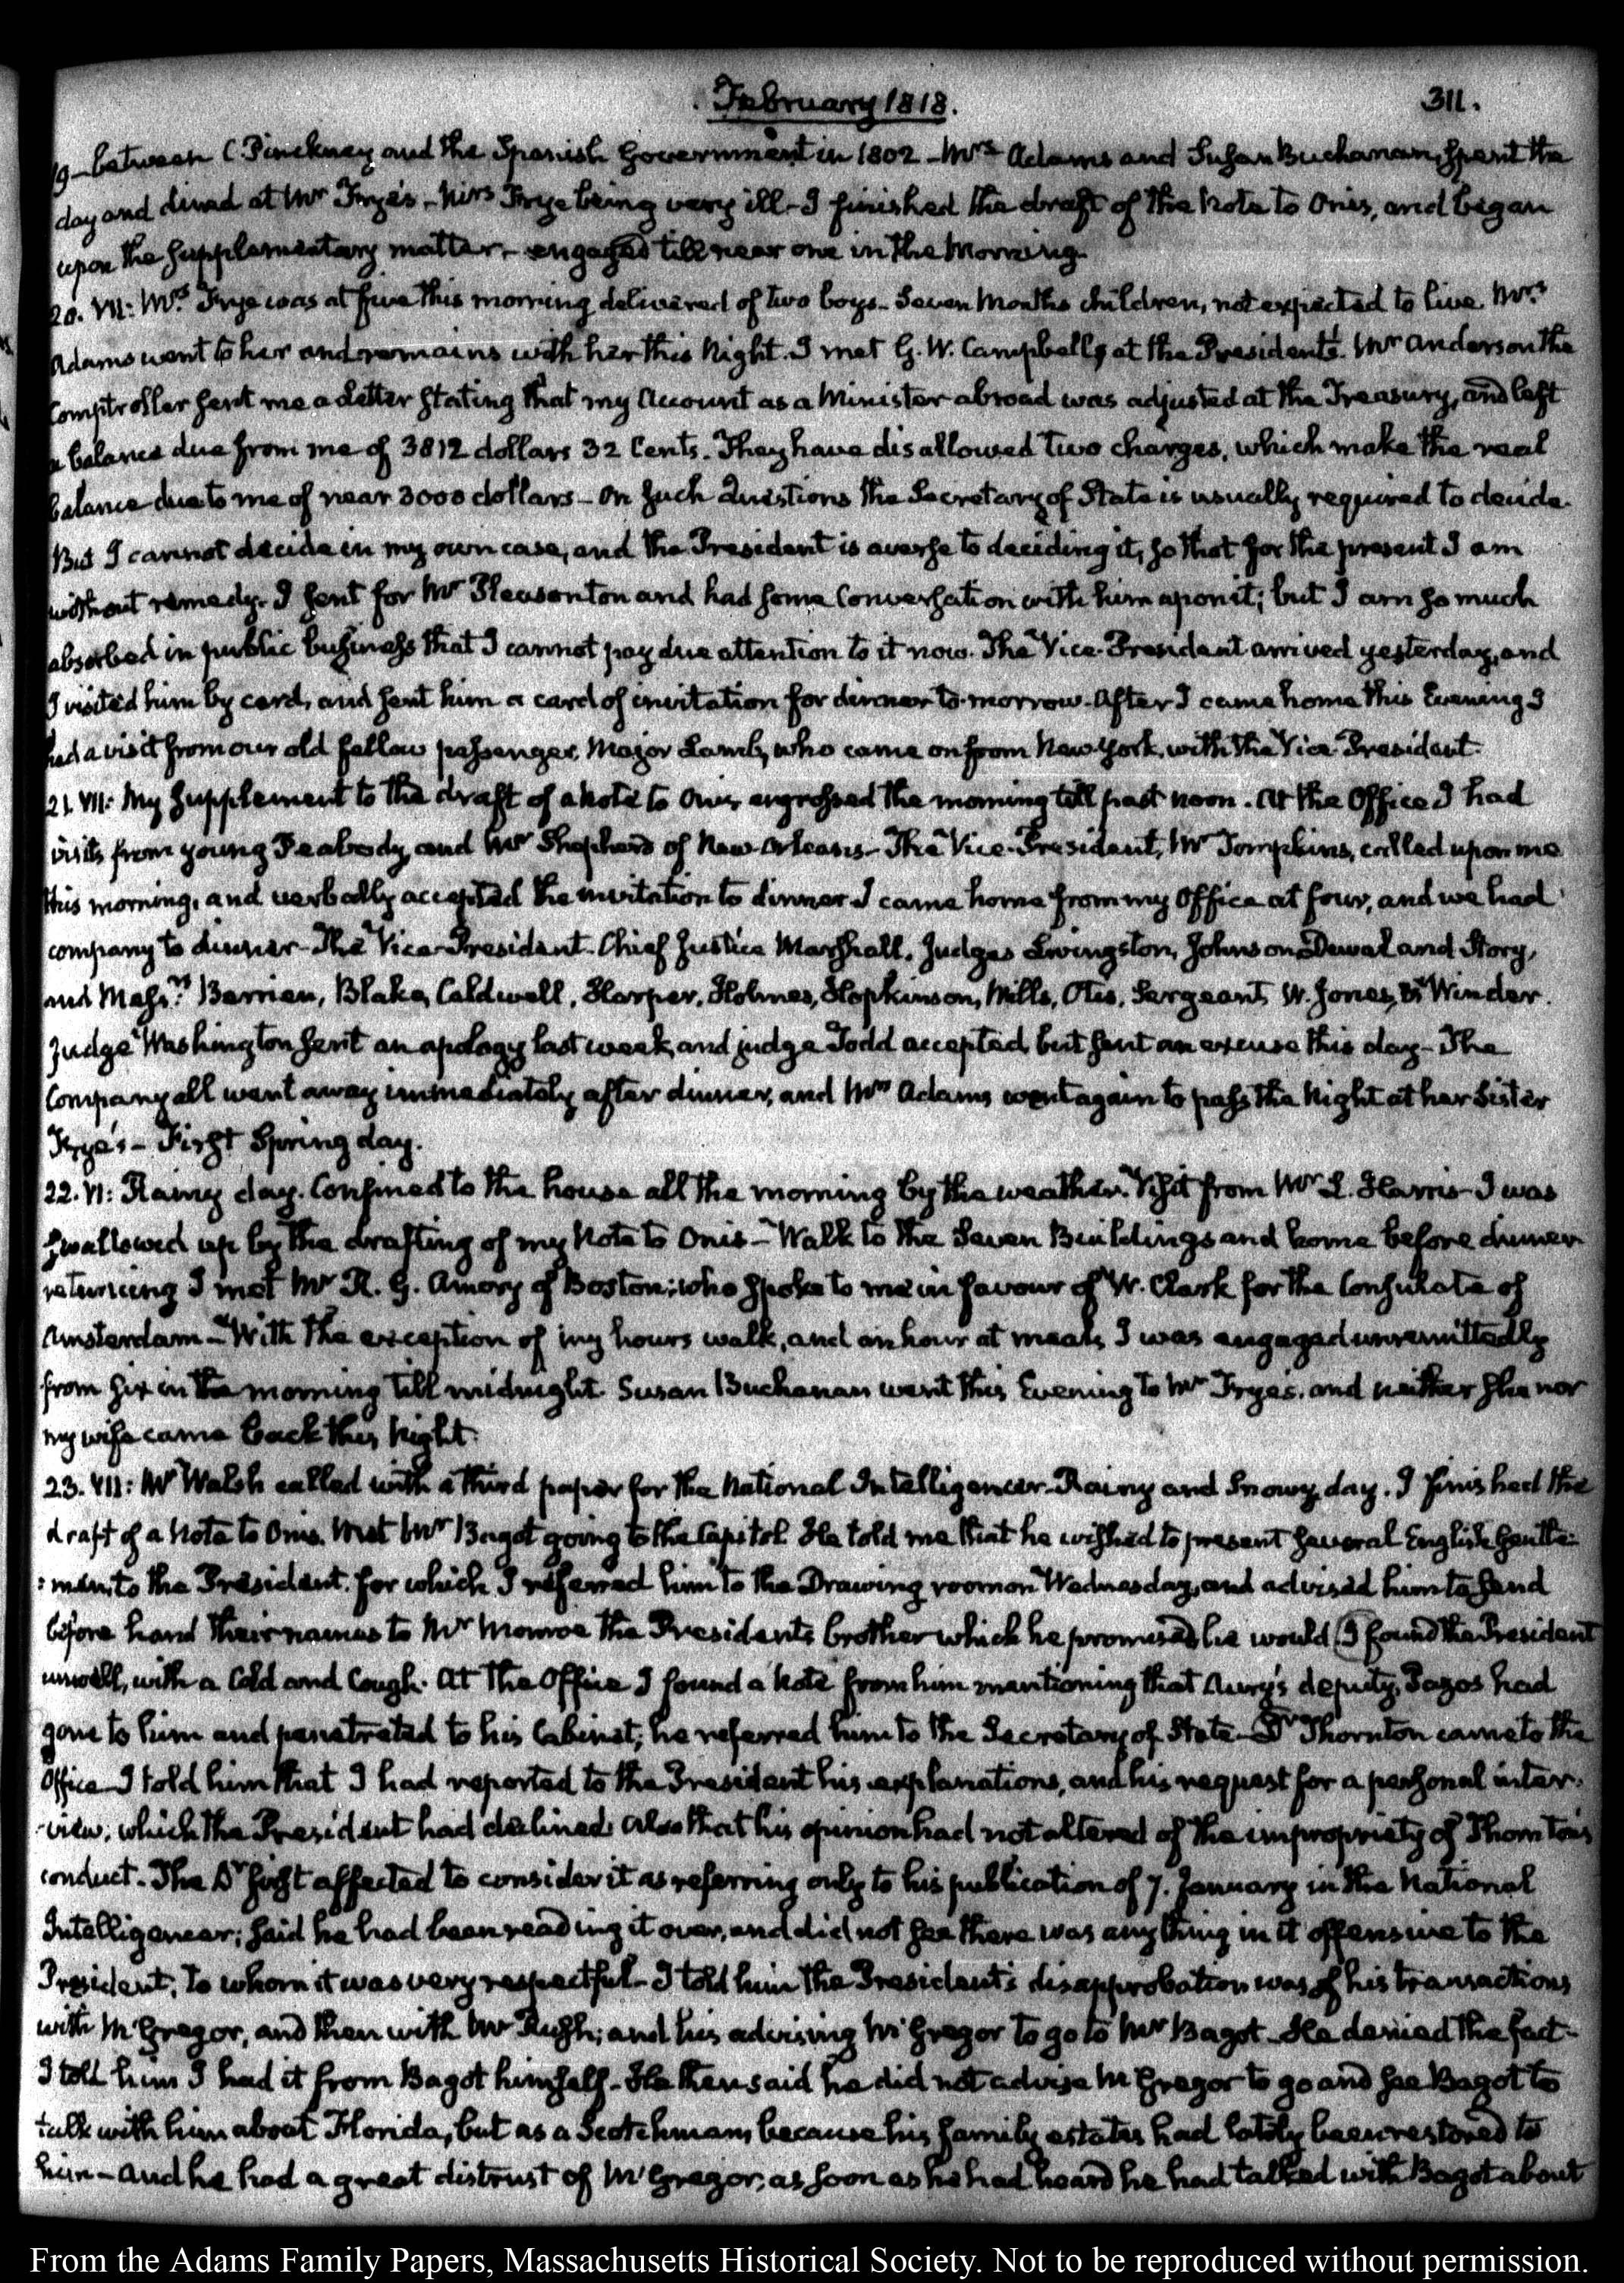 February 1818.
311.
19 – between C Pinckney and the Spanish Government in 1802 – Mrs Adams and Susan Buchanan, spent the
day and dined at Mr Frye's – Mrs Frye being very ill – I finished the draft of the Note to Onis, and began
upon the supplementary matter – engaged till near one in the Morning.
20. VII: Mrs Frye was at five this morning delivered of two boys – Seven Months children, not expected to live. Mrs
Adams went to her and remains with her this Night. I met G. W. Campbell, at the President's. Mr Anderson the
Comptroller sent me a Letter stating that my Account as a Minister abroad was adjusted at the Treasury, and left
a balance due from me of 3812 dollars 32 Cents. They have disallowed two charges, which make the real
balance due to me of near 3000 dollars – On such Questions the Secretary of State is usually required to decide.
But I cannot decide in my own case, and the President is averse to deciding it, so that for the present I am
without remedy. I sent for Mr Pleasonton and had some Conversation with him upon it; but I am so much
absorbed in public business that I cannot pay due attention to it now. The Vice-President arrived yesterday, and
I visited him by card, and sent him a card of invitation for dinner to-morrow. After I came home this Evening I
had a visit from our old fellow passenger, Major Lamb, who came on from New York, with the Vice President.
21. VII: My Supplement to the draft of a Note to Onis, engrossed the morning till past noon. At the Office I had
visits from young Peabody, and Mr Shepherd of New-Orleans – The Vice-President, Mr Tompkins, called upon me
this morning, and verbally accepted the invitation to dinner. I came home from my Office at four, and we had
company to dinner – The Vice-President. Chief Justice Marshall. Judges Livingston, Johnson Duval and Story,
and Messrs Berrien, Blake, Caldwell, Harper, Holmes, Hopkinson, Mills, Otis, Sergeant, W. Jones, & Winder.
Judge Washington sent an apology last week, and judge Todd accepted, but sent an excuse this day – The
Company all went away immediately after dinner, and Mrs Adams went again to pass the Night at her Sister
Frye's – First Spring day.
22. VI: Rainy day. Confined to the house all the morning by the weather. Visit from Mr L. Harris – I was
swallowed up by the drafting of my Note to Onis – Walk to the Seven Buildings and home before dinner
returning I met Mr R. G. Amory of Boston; who spoke to me in favour of W. Clark for the Consulate of
Amsterdam – With the exception of my hours walk, and an hour at meals, I was engaged unremittedly
from six in the morning till midnight. Susan Buchanan went this Evening to Mr Frye's. and neither she nor
my wife came back this Night.
23. VII: Mr Walsh called with a third paper for the National Intelligencer. Rainy and Snowy day. I finished the
draft of a Note to Onis. Met Mr Bagot going to the Capitol. He told me that he wished to present several English Gentle-
:men, to the President. for which I referred him to the Drawing room on Wednesday, and advised him to send
before hand their names to Mr Monroe the President's brother which he promised he would. I found the President
unwell, with a Cold and Cough. At the Office I found a Note from him mentioning that Aury's deputy, Pazos had
gone to him and penetrated to his Cabinet; he referred him to the Secretary of State – Dr Thornton came to the
Office – I told him that I had reported to the President his explanations, and his request for a personal inter-
-view, which the President had declined. Also that his opinion had not altered of the impropriety of Thornton's
conduct. The Dr first affected to consider it as referring only to his publication of 7. January in the National
Intelligencer; said he had been reading it over, and did not see there was any thing in it offensive to the
President, to whom it was very respectful – I told him the President's disapprobation was of his transactions
with McGregor, and then with Mr Rush; and his advising McGregor to go to Mr Bagot – He denied the fact –
I told him I had it from Bagot himself – He then said he did not advise McGregor to go and see Bagot to
talk with him about Florida, but as a Scotchman, because his family estates had lately been restored to
him – And he had a great distrust of McGregor, as soon as he had heard he had talked with Bagot about
From the Adams Family Papers, Massachusetts Historical Society. Not to be reproduced without permission.